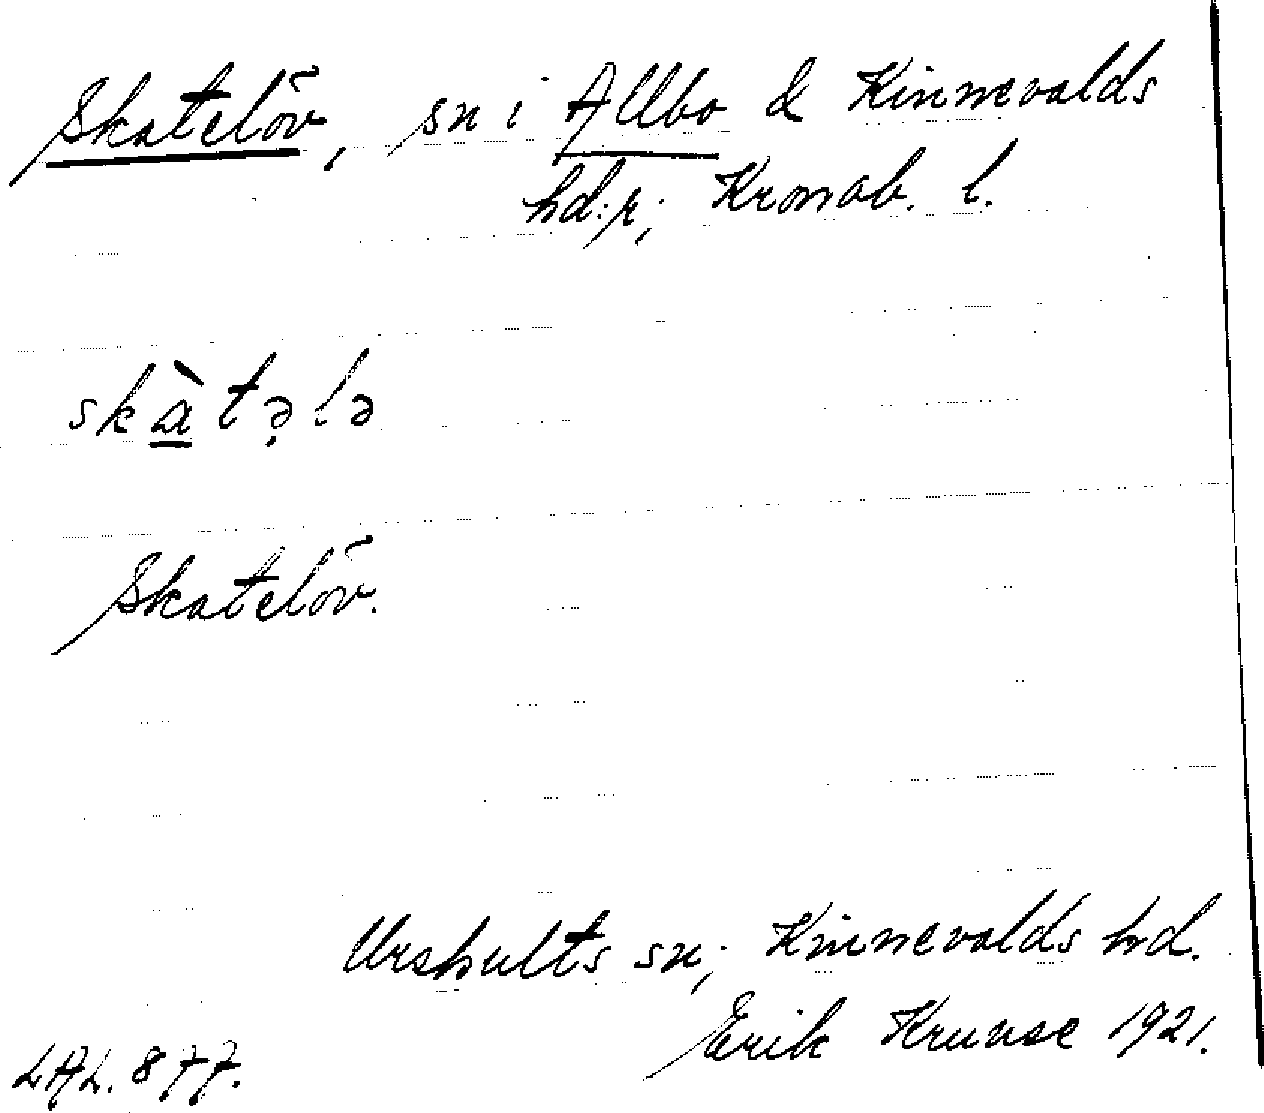 Skatelöv, sn i Allbo & Kinnevalds
hd:r; Kronob. l.
skàtə̣lə
Skatelöv.
Urshults sn; Kinnevalds hd.
Erik Kruuse 1921.
LAL. 877.